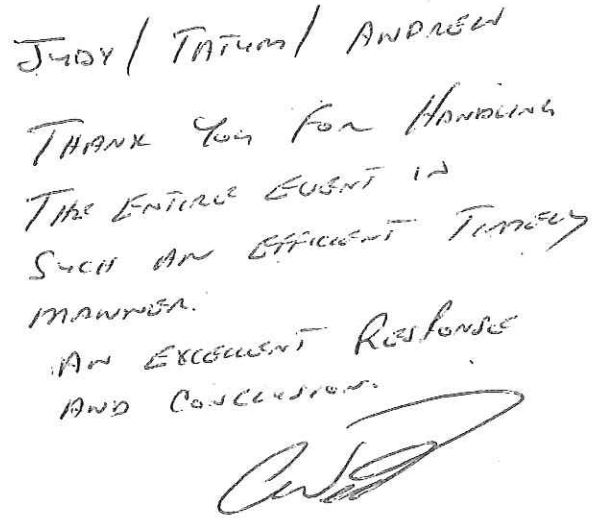 JUDY / TATUM / ANDREW
THANK YOU FOR HANDLING
THE ENTIRE EVENT IN
SUCH AN EFFICIENT TIMELY
MANNER.
AN EXCELLENT RESPONSE
AND CONCLUSION.